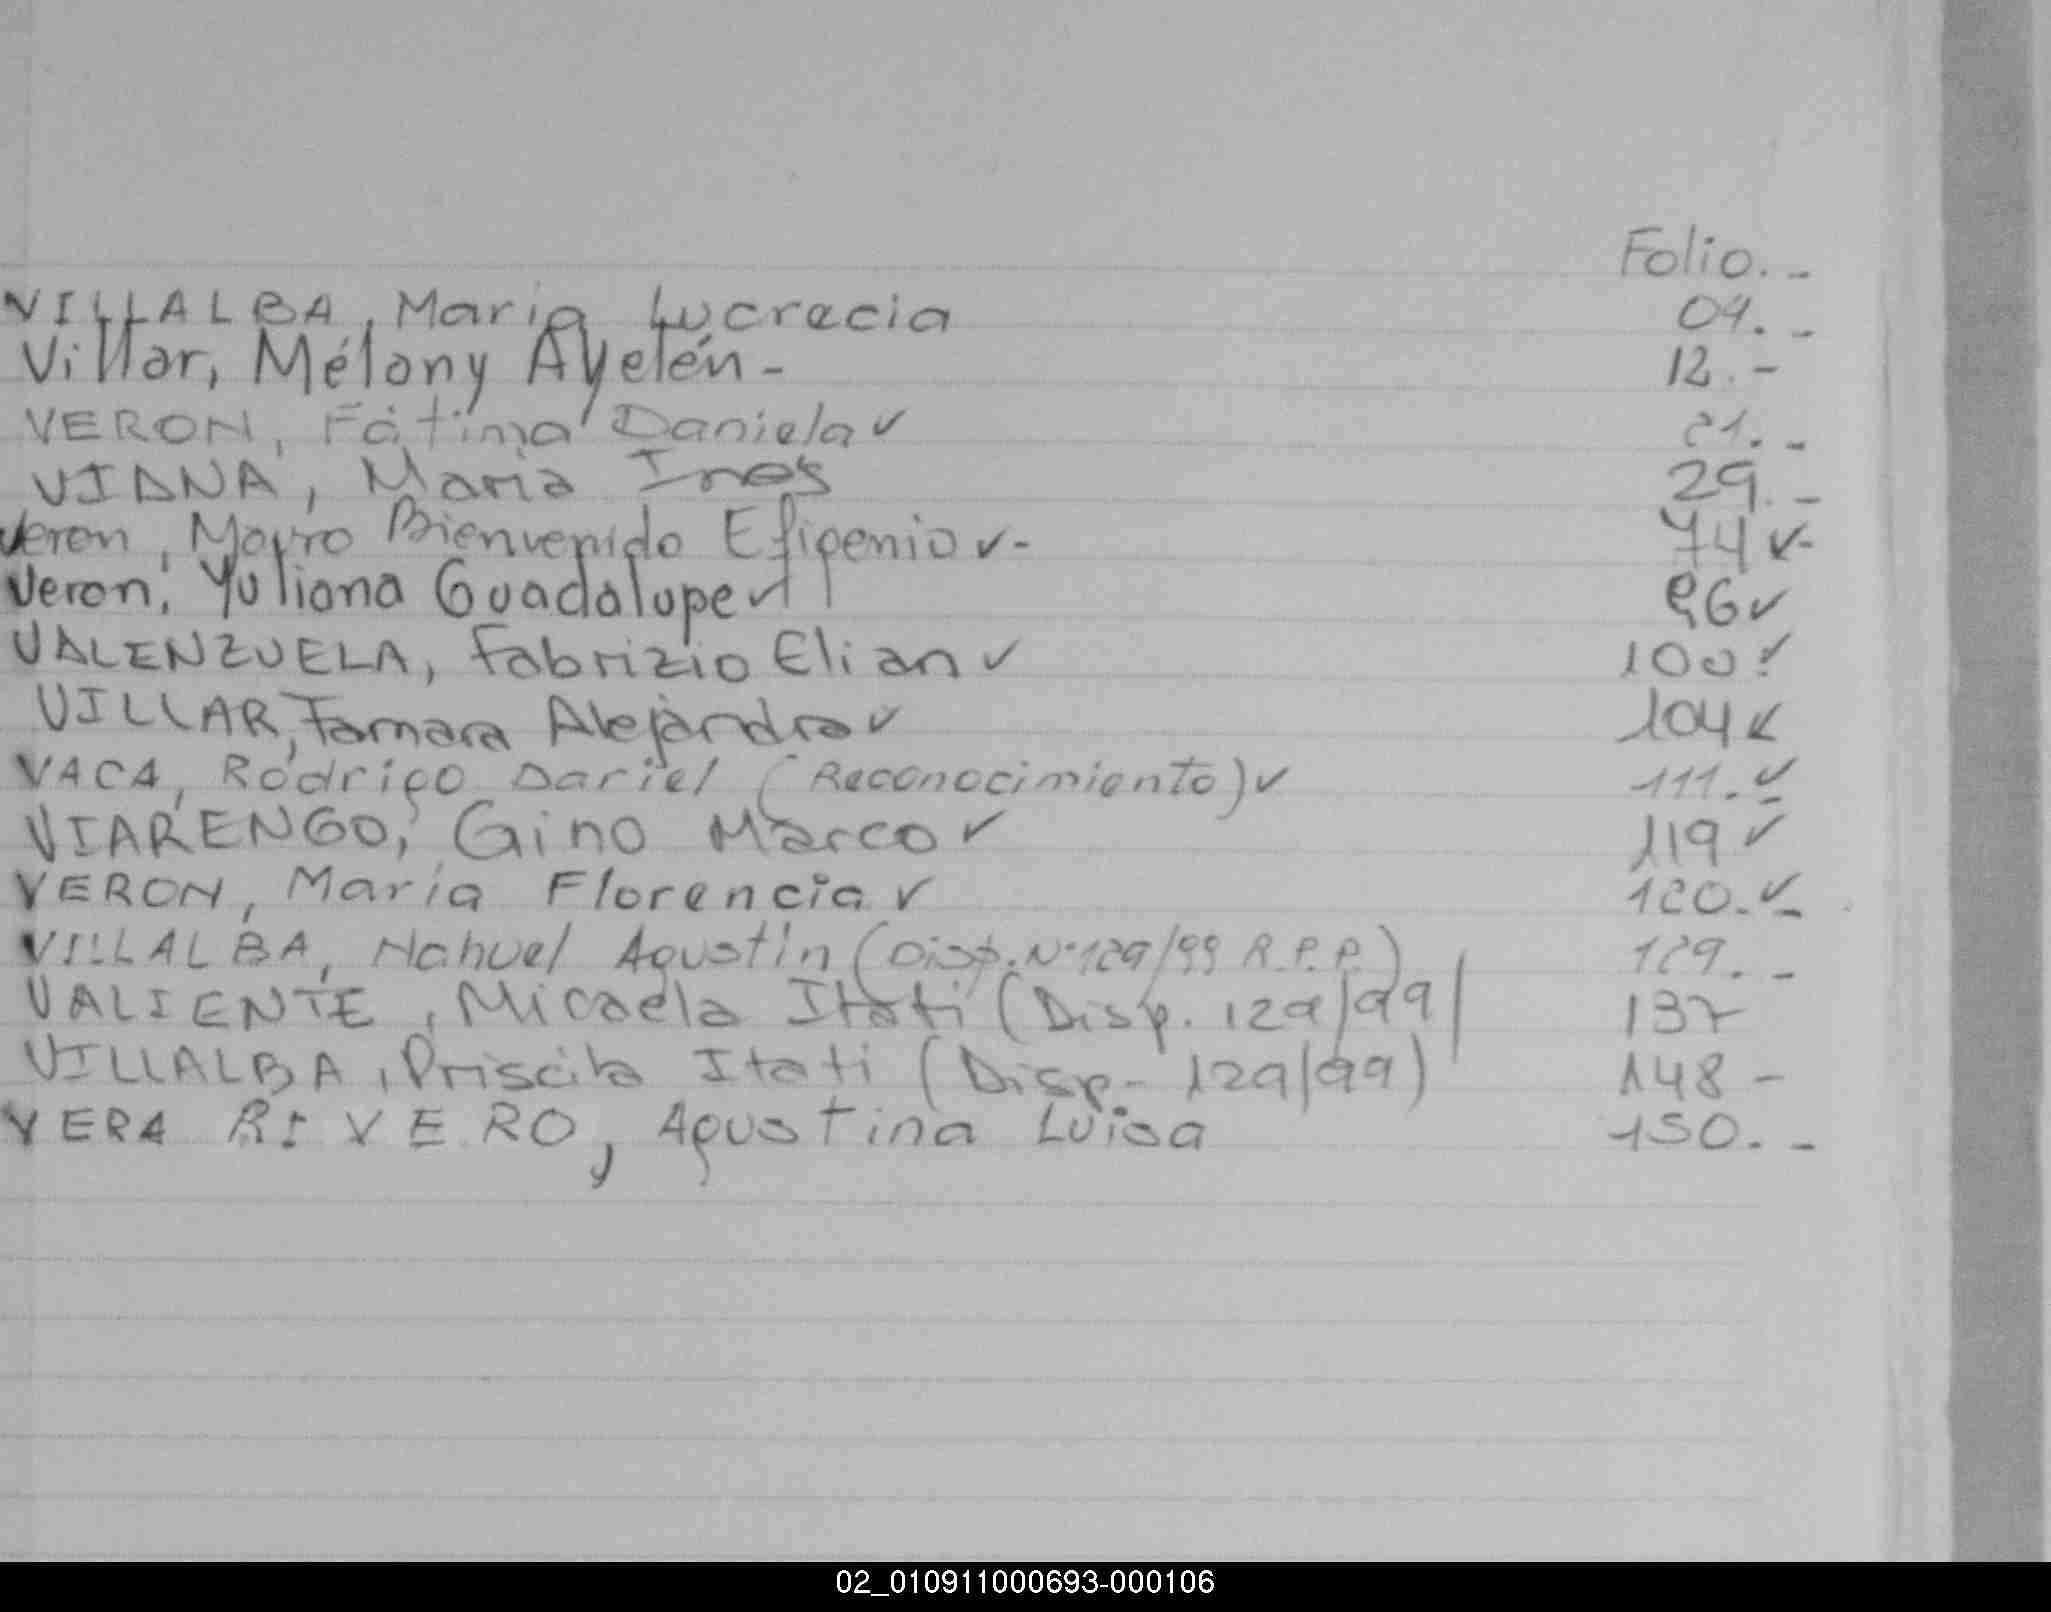 Folio.-
VILLALBA, Maria Lucrecia 09.-
Villar, Mélony Ayelén- 12.-
VERON, Fátima Daniela ✓ 21.-
VIANA, Maria Inés 29.-
Veron, Mayro Bienvenido Efigenio ✓- 74 ✓-
Veron, Yuliana Guadalupe ✓ 96 ✓
VALENZUELA, Fabrizio Elian ✓ 100 ✓
VILLAR, Tamara Alejandra ✓ 104 ✓
VACA, Rodrigo Dariel (Reconocimiento) ✓ 111.✓-
VIARENGO, Gino Marco ✓ 119 ✓
VERON, María Florencia ✓ 120.✓-
VILLALBA, Nahuel Agustín (Disp. N° 129/99 R.P.P.) 129.-
VALIENTE, Micaela Itati (Disp. 129/99) 137
VILLALBA, Priscila Itati (Disp- 129/99) 148-
VERA RIVERO, Agustina Luisa 150.-
02_010911000693-000106